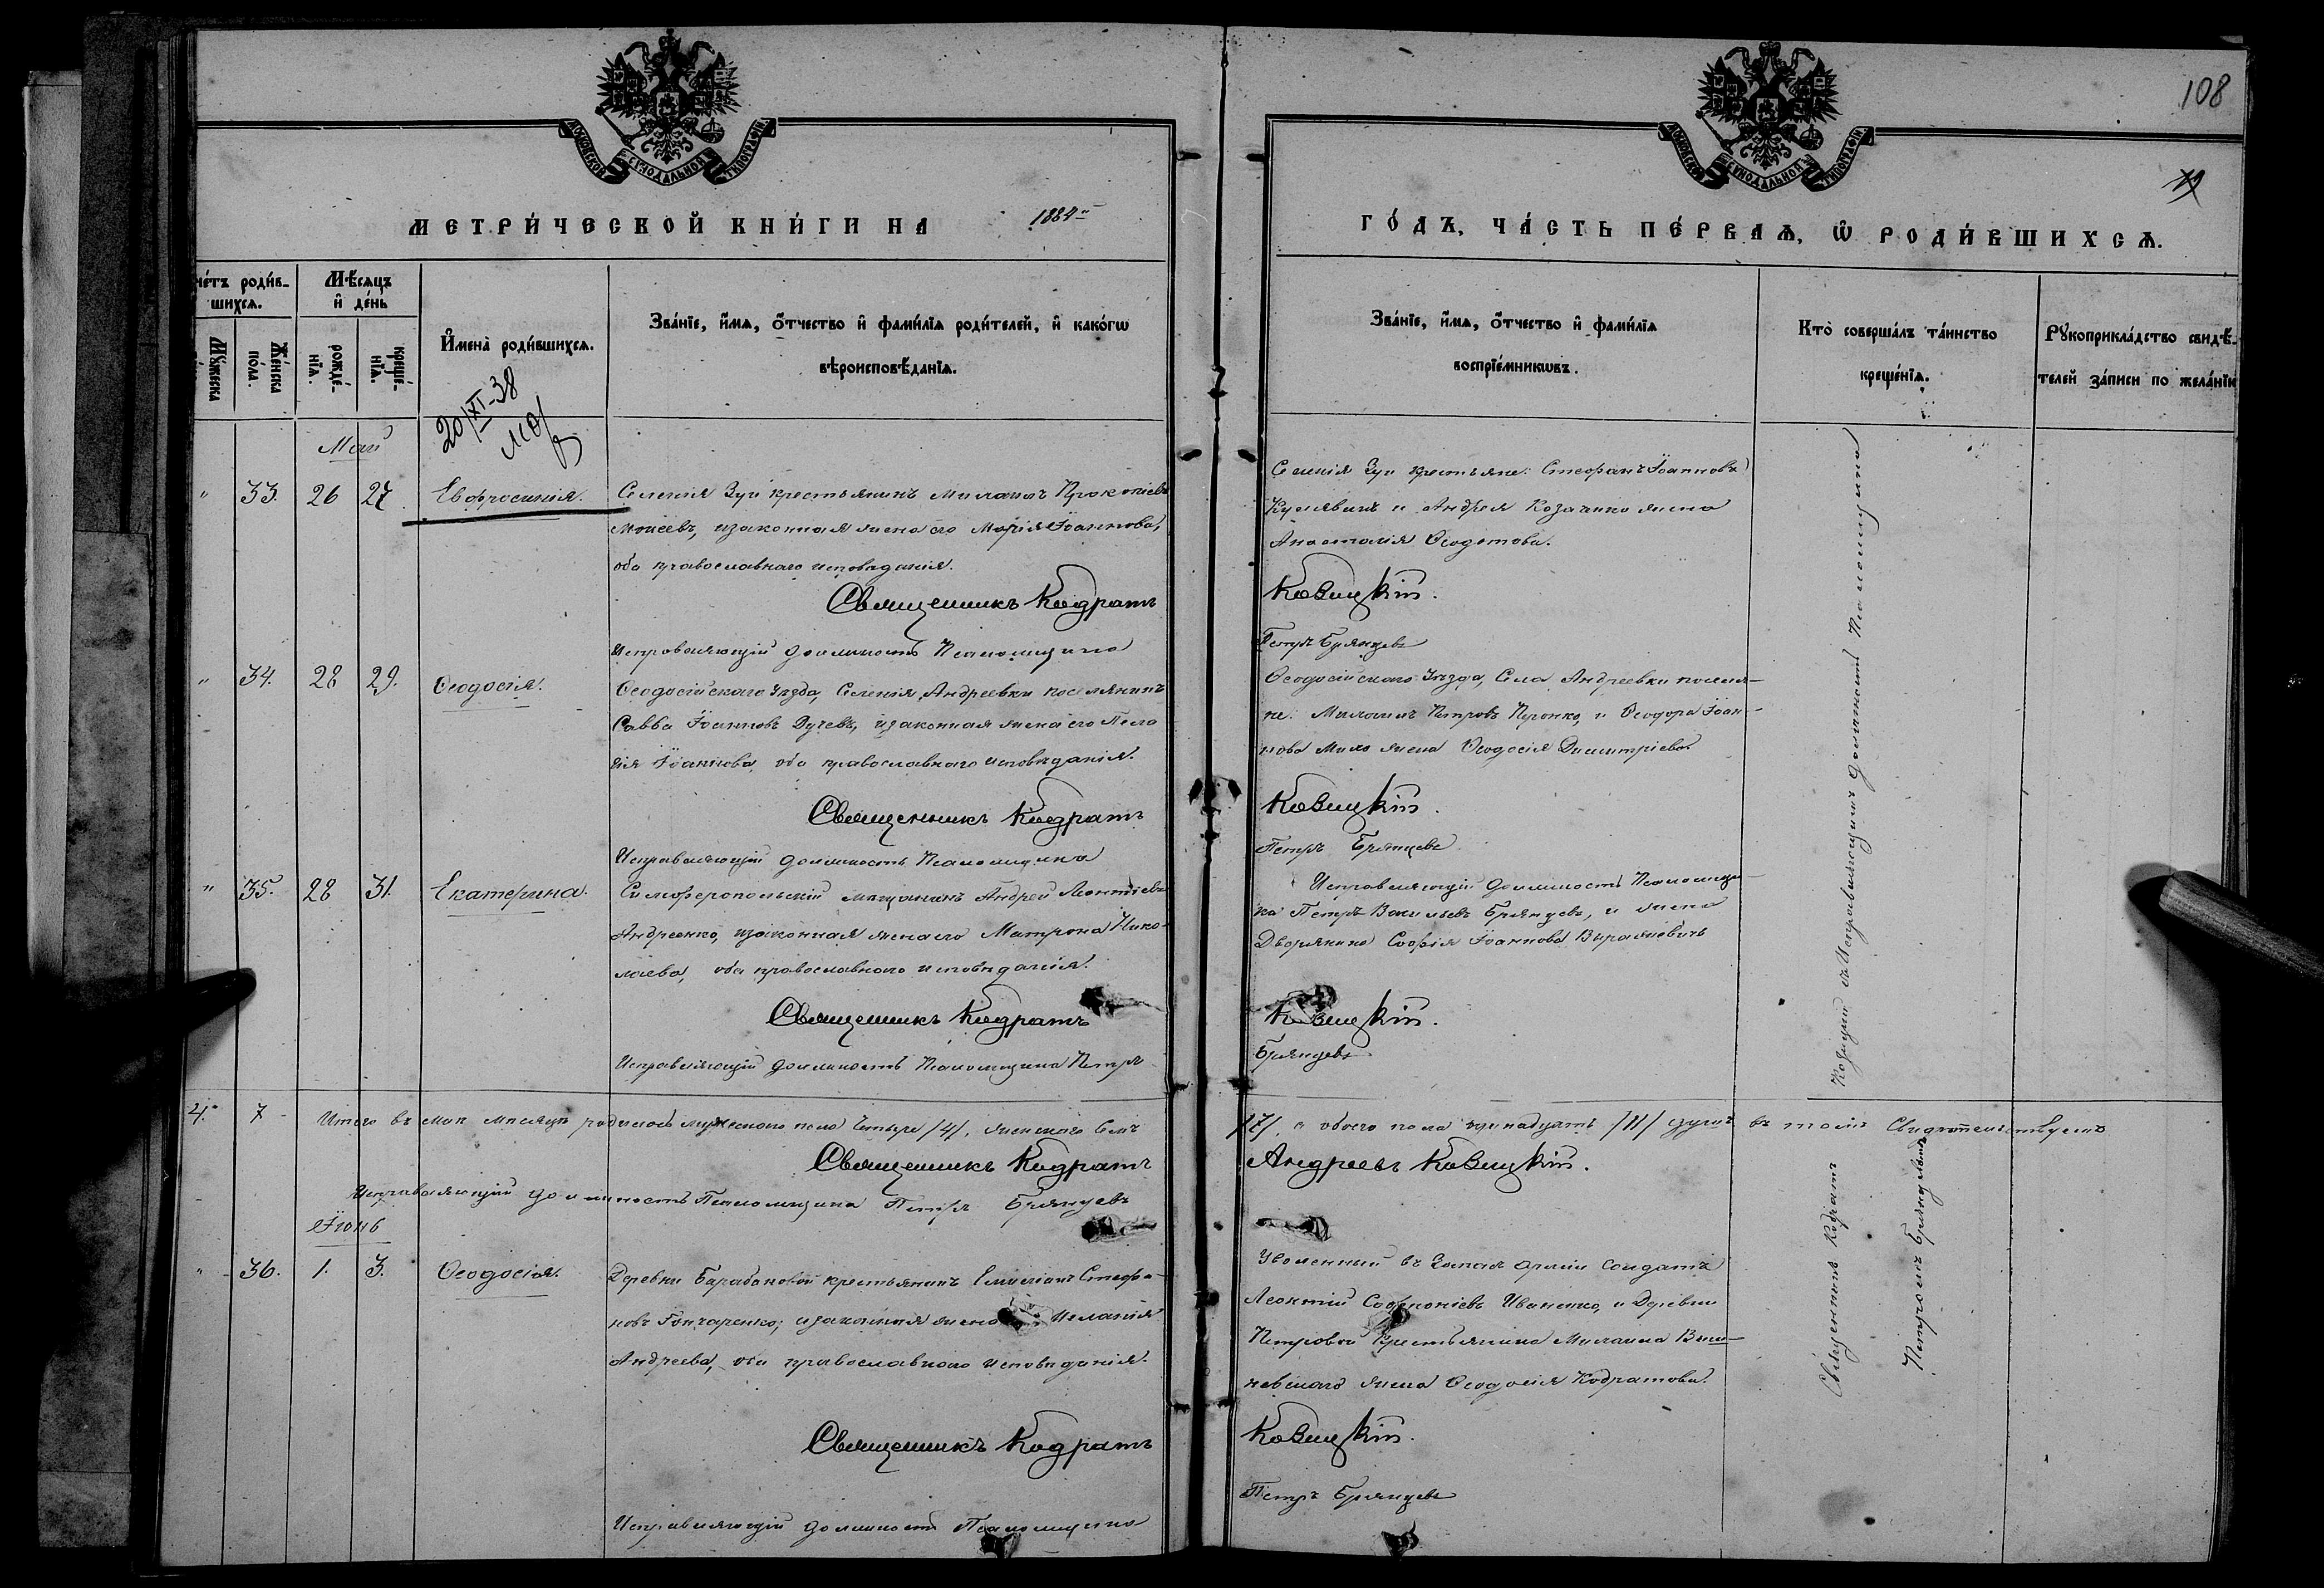 108
МОСКОВСКОЙ СѴНОДАЛЬНОЙ ТИПОГРАФІИ
МОСКОВСКОЙ СѴНОДАЛЬНОЙ ТИПОГРАФІИ
МЕТРИ́ЧЕСКОЙ КНИ́ГИ НА 1884й
ГО́ДЪ, ЧА́СТЬ ПЕ́РВАѦ, Ѿ РОДИ́ВШИХСѦ.
че́тъ роди́в-
шихсѧ.
Мѣ́сѧцъ
и҆ де́нь
Мꙋ́жеска
Же́нска по́ла.
рожде́-
нїѧ.
креще́-
нїѧ.
И҆мена̀ роди́вшихсѧ.
Зва́нїе, и҆́мѧ, ѻ҆́тчество и҆ фами́лїѧ роди́телей, и҆ како́гѡ
вѣроисповѣ́данїѧ.
Зва́нїе, и҆́мѧ, ѻ҆́тчество и҆ фами́лїѧ
воспрїе́мникѡвъ.
Кто̀ соверша́лъ та́инство
креще́нїѧ.
Рꙋкоприкла́дство свидѣ́-
телей за́писи по жела́нїю
20/XI-38
Май
" 33. 26 27. Евфросинія.
Селенія Зуи крестьянинъ Михаилъ Прокопіевъ
Моисеевъ, и законная жена его Марія Іоаннова,
оба православнаго исповѣданія.
Священникъ Кодратъ
Исправляющій должность Псаломщика
Селенія Зуи крестьяне: Стефанъ Іоанновъ
и Андрея Козаченко жена
Анастасія Ѳеодотова.
Ковицкій.
Петръ Брянцевъ
" 34. 28 29. Ѳеодосія.
Ѳеодосійскаго Уѣзда, Селенія Андреевки поселянинъ
Савва Іоанновъ Дучевъ, и законная жена его Пела
гія Іоаннова, оба православнаго исповѣданія.
Священникъ Кодратъ
Исправляющій должность Псаломщика
Ѳеодосійскаго Уѣзда, Села Андреевки поселя-
не: Михаилъ Петровъ и Ѳеодора Іоан-
нова жена Ѳеодосія Димитріева.
Ковицкій.
Петръ Брянцевъ
" 35. 28 31. Екатерина.
Симферопольскій мѣщанинъ Андрей Леонтіевъ
Андреенко, и законная жена его Матрона Нико-
лаева, оба православнаго исповѣданія.
Священникъ Кодратъ
Исправляющій должность Псаломщика Петръ
Исправляющій должность Псаломщи-
ка Петръ Васильевъ Брянцевъ, и жена
Дворянина Софія Іоаннова
Ковицкій.
Брянцевъ
4. 7
Итого въ маѣ мѣсяцѣ родилось мужескаго пола Четыре /4/, женскаго Семь
/7/, а обоего пола одинадцать /11/ душъ въ томъ Свидѣтельствуемъ
Священникъ Кодратъ Андреевъ Ковицкій.
Исправляющій должность Псаломщика Петръ Брянцевъ
Іюнь
" 36. 1. 3. Ѳеодосія.
Деревни Барабановой крестьянинъ Емиліанъ Стефа-
новъ Гончаренко, и законная жена Меланія
Андреева, оба православнаго исповѣданія.
Священникъ Кодратъ
Исправляющій должность Псаломщика
Уволенный въ Запасъ Арміи Солдатъ
Леонтій Софроніевъ Иваненко, и Деревни
Петровой Крестьянина Михаила Виш-
невскаго жена Ѳеодосія Кодратова.
Ковицкій.
Петръ Брянцевъ
Священникъ Кодратъ Ковицкій съ Исправляющимъ должность Псаломщика
Петромъ Брянцевымъ